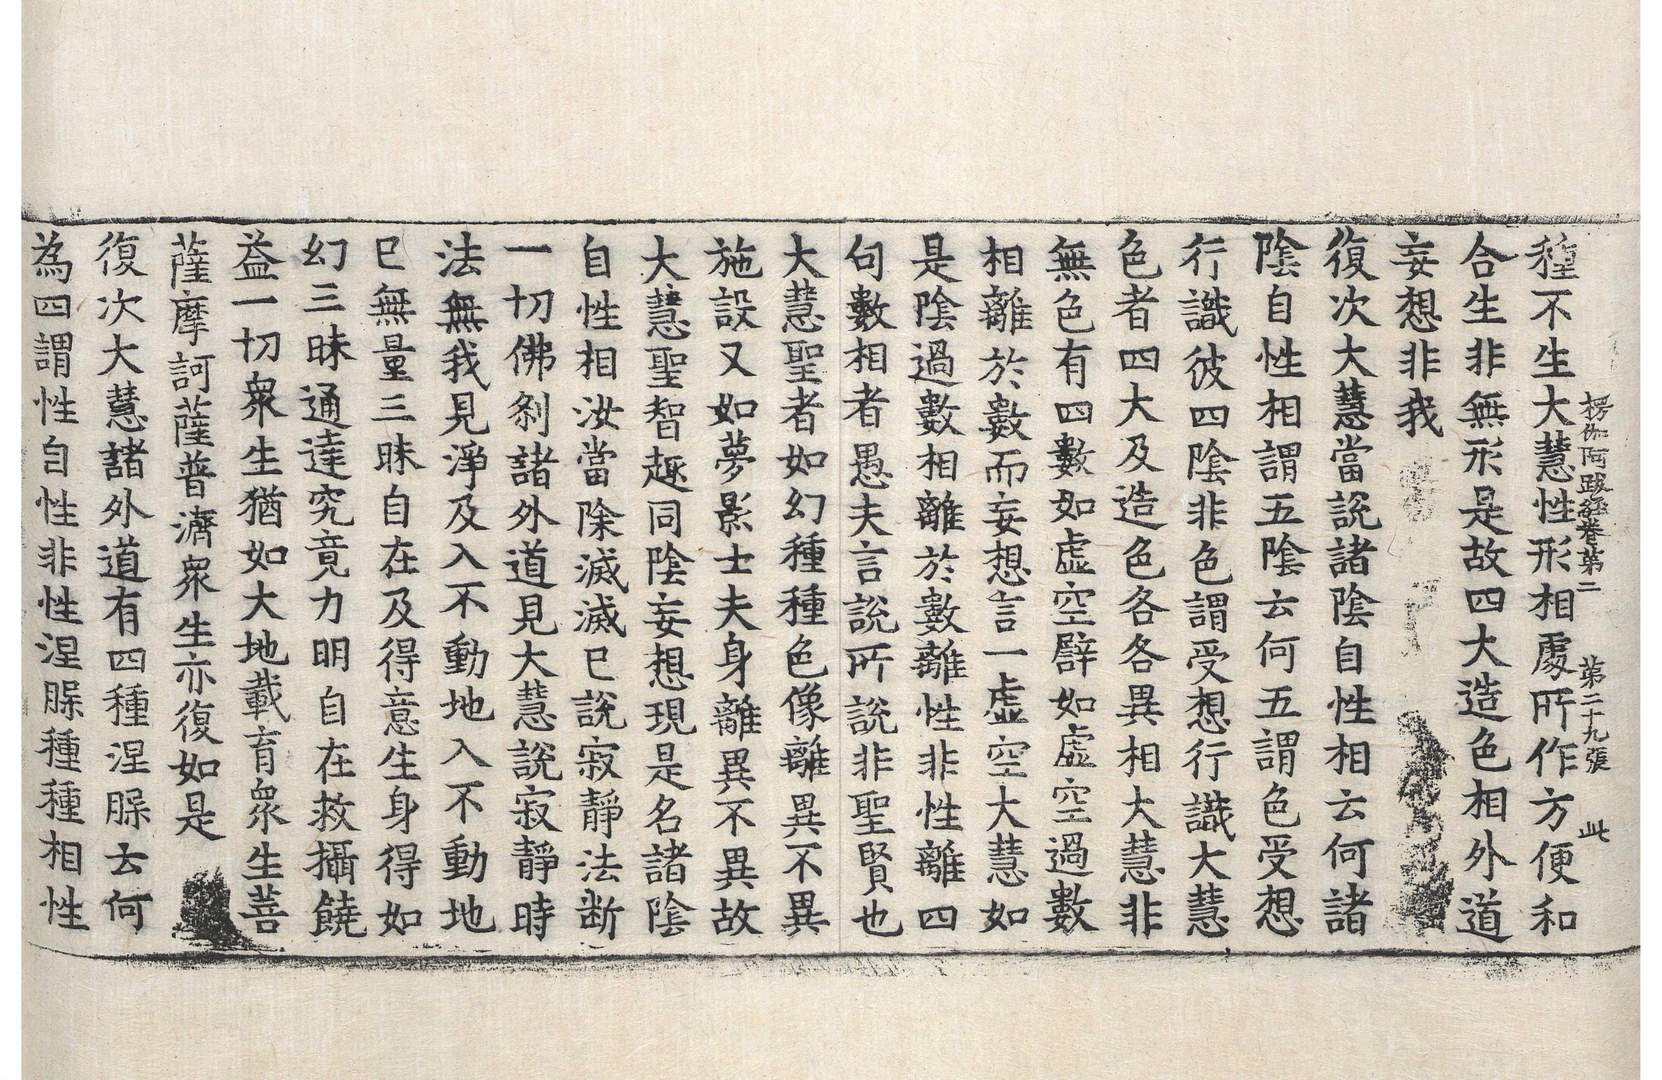 楞伽阿跋經卷第二　第二十九張　此
種不生大慧性形相處所作方便和
合生非無形是故四大造色相外道
妄想非我
復次大慧當說諸陰自性相云何諸
陰自性相謂五陰云何五謂色受想
行識彼四陰非色謂受想行識大慧
色者四大及造色各各異相大慧非
無色有四數如虛空譬如虛空過數
相離於數而妄想言一虛空大慧如
是陰過數相離於數離性非性離四
句數相者愚夫言說所說非聖賢也
大慧聖者如幻種種色像離異不異
施設又如夢影士夫身離異不異故
大慧聖智趣同陰妄想現是名諸陰
自性相汝當除滅滅已說寂靜法断
一切佛剎諸外道見大慧說寂靜時
法無我見淨及入不動地入不動地
已無量三昧自在及得意生身得如
幻三昧通達究竟力明自在救攝饒
益一切衆生猶如大地載育衆生菩
薩摩訶薩普濟衆生亦復如是
復次大慧諸外道有四種涅槃云何
為四謂性自性非性涅槃種種相性